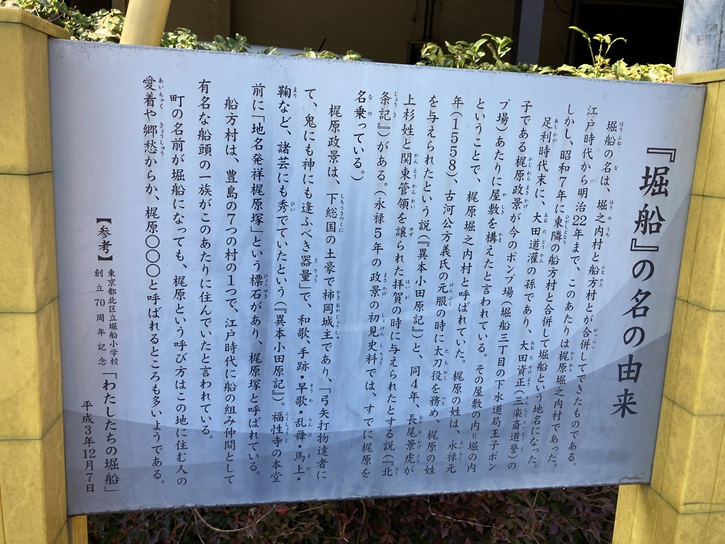 『堀船』の名の由来
堀船の名は、堀之内村と船方村とが合併してできたものである。
江戸時代から明治22年まで、このあたりは梶原堀之内村であった。
しかし、昭和7年に東隣の船方村と合併して堀船という地名になった。
足利時代末に、大田道灌の孫であり、大田資正(三楽斎道誉)の
子である梶原政景が今のポンプ場(堀船三丁目の下水道局王子ポン
プ場)あたりに屋敷を構えたと言われている。その屋敷の内=堀の内
ということで、梶原堀之内村と呼ばれていた。梶原の姓は、永禄元
年(1558)、古河公方義氏の元服の時に太刀役を務め、梶原の姓
を与えられたという説(『異本小田原記』)と、同4年、長尾景虎が
上杉姓と関東管領を譲られた拝賀の時に与えられたとする説(『北
条記』)がある。(永禄5年の政景の初見史料では、すでに梶原を
名乗っている。)
梶原政景は、下総国の土豪で柿岡城主であり、「弓矢打物達者に
て、鬼にも神にも逢ふべき器量」で、和歌、手跡・早歌・乱舞・馬上・
鞠など、諸芸にも秀でていたという(『異本小田原記』)。福性寺の本堂
前に「地名発祥梶原塚」という標石があり、梶原塚と呼ばれている。
船方村は、豊島の7つの村の1つで、江戸時代に船の組み仲間として
有名な船頭の一族がこのあたりに住んでいたと言われている。
町の名前が堀船になっても、梶原という呼び方はこの地に住む人の
愛着や郷愁からか、梶原〇〇〇と呼ばれるところも多いようである。
【参考】東京都北区立堀船小学校
創立70周年記念
「わたしたちの堀船」
平成3年12月7日